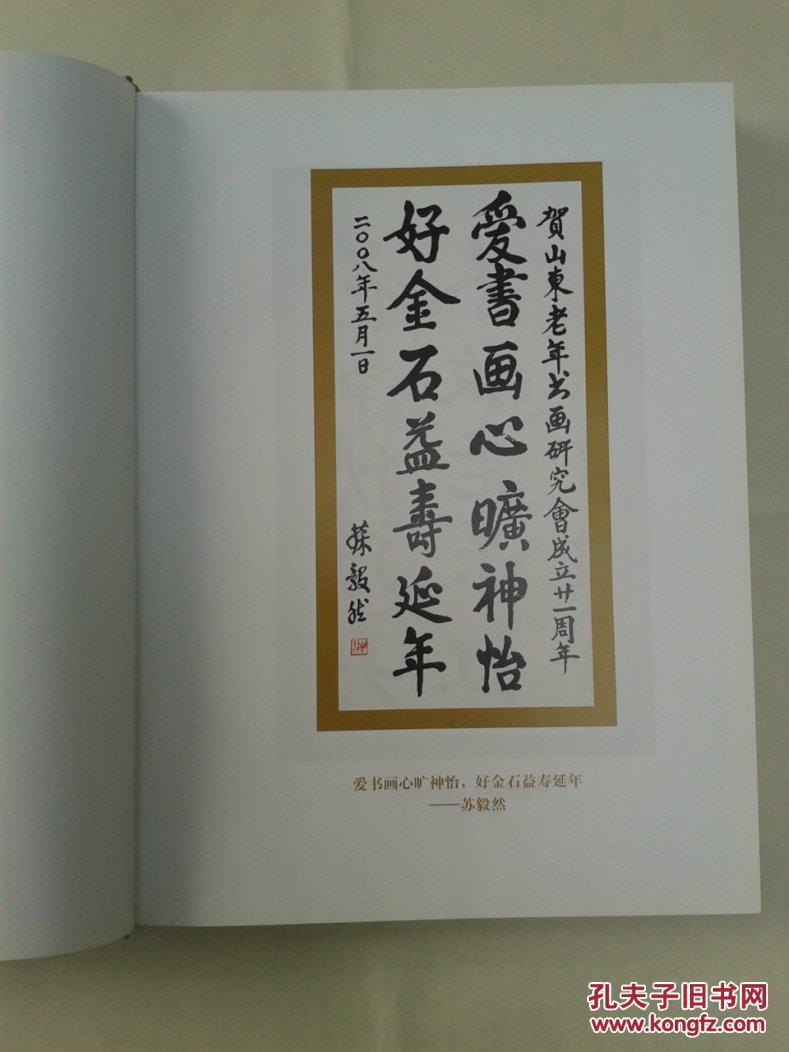 賀山東老年书画研究會成立廿一周年
愛書画心曠神怡
好金石益壽延年
二〇〇八年五月一日
蘇毅然
爱书画心旷神怡，好金石益寿延年
——苏毅然
孔夫子旧书网
www.kongfz.com